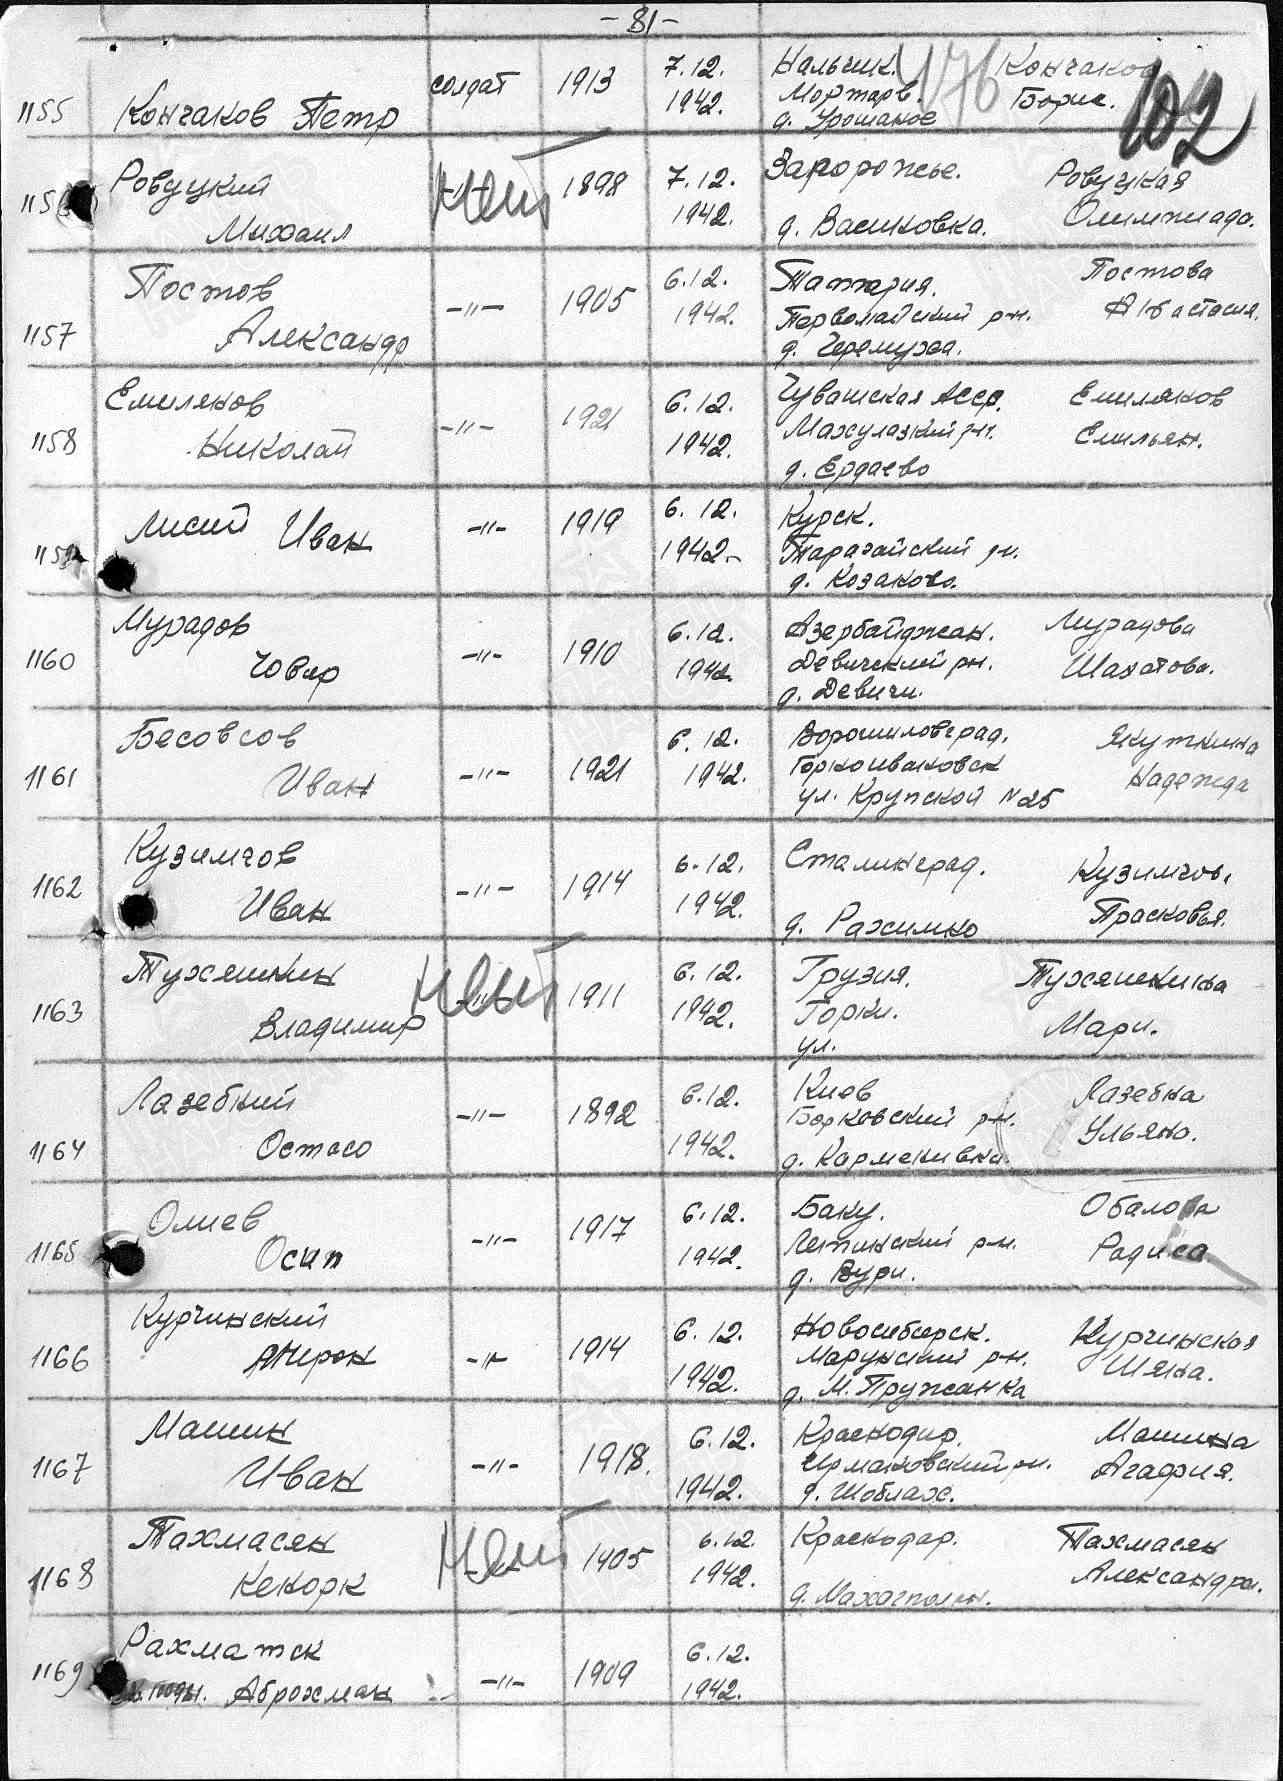 -81-
1155 Кончаков Петр солдат 1913 7.12. 1942. Нальчик. Мортарв. д. Урошаное Кончаков Борис.
176
102
1156 Ровуцкий Михаил нет 1898 7.12. 1942. Запорожье. д. Васиковка. Ровуцкая Олимпиада.
1157 Постов Александр -"- 1905 6.12. 1942. Таттария. Первомайский рн. д. Черемуха. Постова Анастасия.
1158 Емиляков Николай -"- 1921 6.12. 1942. Чувашская Асср. д. Ердаево Емиляков Емильян.
1159 Лисий Иван -"- 1919 6.12. 1942. Курск. Таразайский рн. д. Козаково.
1160 Мурадов Човир -"- 1910 6.12. 1942 Азербайджан. Девический рн. д. Девичи. Мурадова Шахатова.
1161 Бесовсов Иван -"- 1921 6.12. 1942. Ворошиловград. Горкоивановск ул. Крупской N 25 Якуткина Надежда
1162 Кузимчов Иван -"- 1914 6.12. 1942. Сталинград. д. Рахимко Кузимчов. Прасковья.
1163 Тухяшкин Владимир -"- нет 1911 6.12. 1942. Грузия. Горки. ул. Тухяшкина Мари.
1164 Лазебний Остасо -"- 1892 6.12. 1942. Киев Борковский рн. д. Кармекивка. Лазебна Ульяно.
1165 Олиев Осип -"- 1917 6.12. 1942. Баку. Лепинский рн. д. Вури. Обалова Радиса.
1166 Курчинский Мирон -"- 1914 6.12. 1942. Новосибирск. Марунский рн. д. М. Пружанка Курчинская Шяна.
1167 Машин Иван -"- 1918. 6.12. 1942. Краснодар. Ирмаковский рн. д. Шоблах. Машина Агафия.
1168 Тахмасян Кекорк нет 1905 6.12 1942. Краснодар. д. Махагполян. Тахмасян Александра.
1169 Рахматск Аброхман -"- 1909 6.12. 1942.